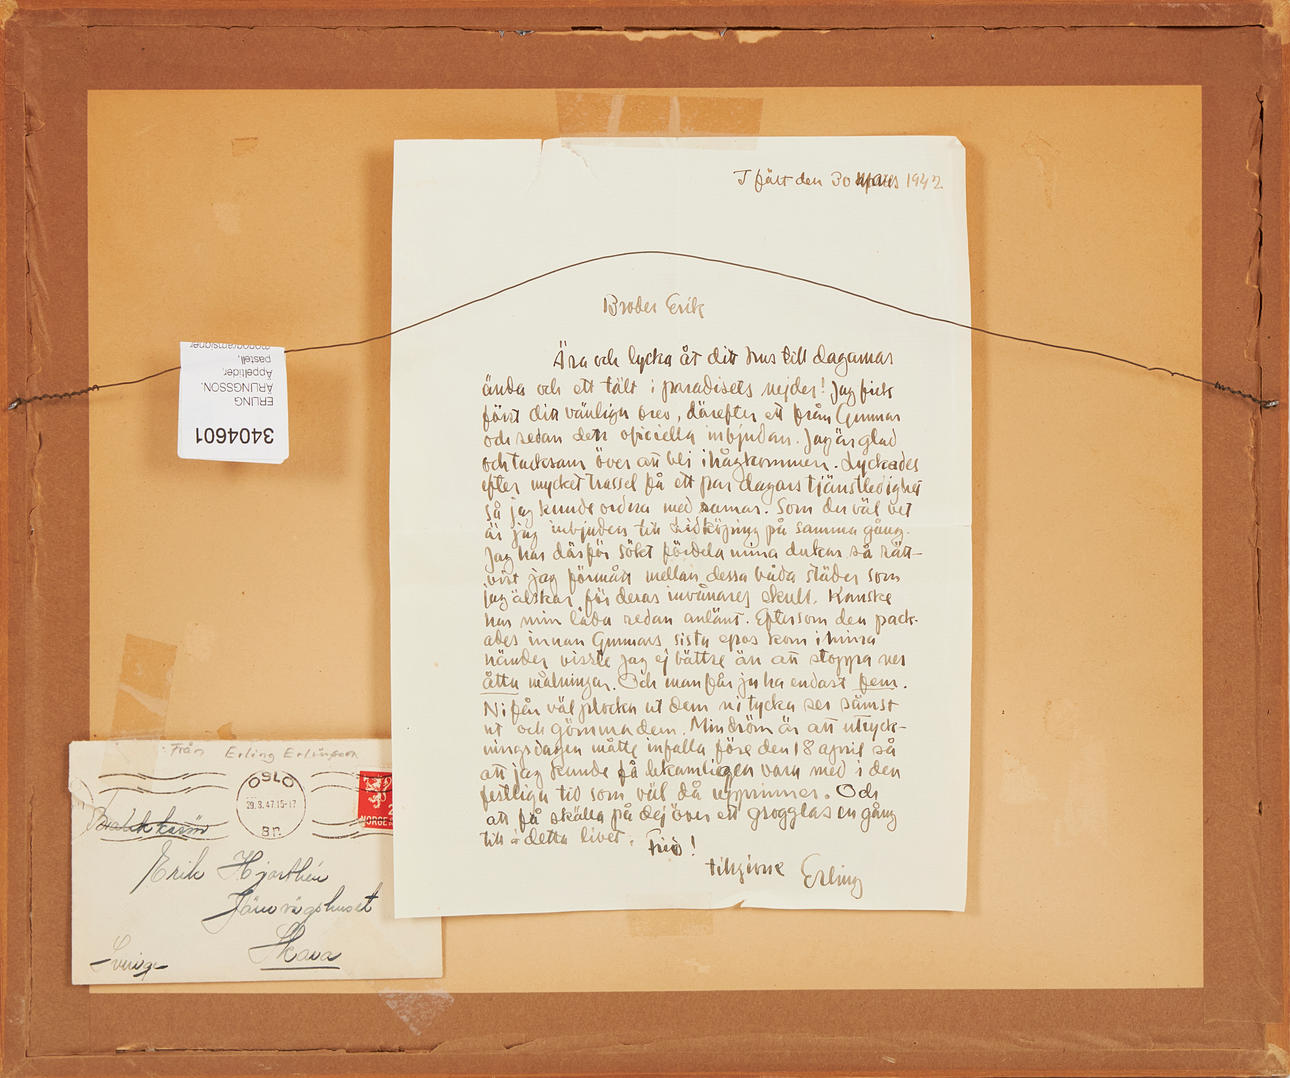 I fält den 30 mars 1942
Broder Erik
Ära och lycka åt ditt hus till dagarnas
ända och ett tält i paradisets nejder! Jag fick
först ditt vänliga brev, därefter ett från Gunnar
och sedan den officiella inbjudan. Jag är glad
och tacksam över att bli ihågkommen. Lyckades
efter mycket trassel få ett par dagars tjänstledighet
så jag kunde ordna med ramar. Som du väl vet
är jag inbjuden till Lidköping på samma gång.
Jag har därför sökt fördela mina dukar så rätt-
vist jag förmått mellan dessa båda städer som
jag älskar för deras invånares skull. Kanske
har min låda redan anlänt. Eftersom den pack-
ades innan Gunnars sista epos kom i mina
händer visste jag ej bättre än att stoppa ner
åtta målningar. Och man får ju ha endast fem.
Ni får väl plocka ut dem ni tycka ser sämst
ut och gömma dem. Min dröm är att utryck-
ningsdagen måtte infalla före den 18 april så
att jag kunde få lekamligen vara med i den
festliga tid som väl då upprinner. Och
att få skålla på dej över ett grogglas en gång
till i detta livet. Frid!
tillgivne Erling
3404601
ERLING
ÄRLINGSSON.
Äppeltider,
pastell,
monogramsigner
Från Erling Erlingson
OSLO
29.3.47.15-17
Br.
NORGE
Erik Hjorthén
Järnvägshuset
Skara
Sverige